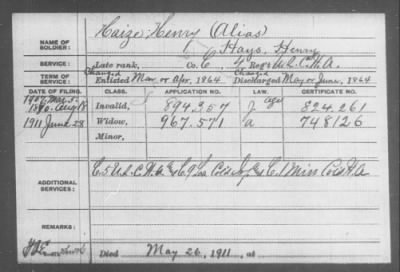 NAME OF SOLDIER: Haize, Henry (Alias)
Hays, Henry
SERVICE: Late rank, Co. C, 4 Reg't U.S.C.H.A.
TERM OF SERVICE: Enlisted Mar or Apr, 1864 Discharged May or June, 1864
DATE OF FILING. CLASS. APPLICATION NO. LAW. CERTIFICATE NO.
Invalid, 894.257 824.261
1911 June 28 Widow, 967.571 a 748126
Minor,
ADDITIONAL SERVICES: C. 5 U.S.C.H.A.
REMARKS:
Died May 26, 1911, at